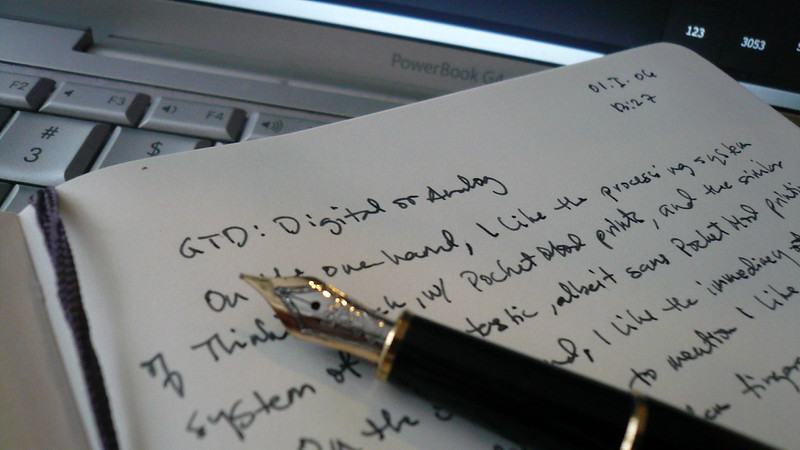 123
3053
PowerBook G4
F2
F3
F4
#
3
$
01.I.06
GTD: Digital or Analog
On the one hand, I like the processing system
of Think w/ PocketMod prints, and the similar
system of tastic, albeit sans PocketMod printi
On the I like the immediacy of
to mention I like